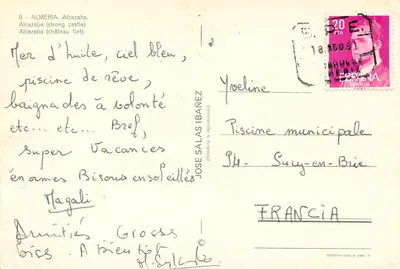 8. - ALMERIA. Alcazaba.
Alcazaba (strong castle)
Alcazaba (château fort)
Mer d'huile, ciel bleu,
piscine de rêve,
baignades à volonté
etc... etc... Bref,
super Vacances
énormes Bisous ensoleillés
Magali
Amitiés Grosses
bises. A bientôt
JOSE SALAS IBAÑEZ
20
PTA
ESPAÑA
Yveline
Piscine municipale
94. Sucy-en-Brie
FRANCIA